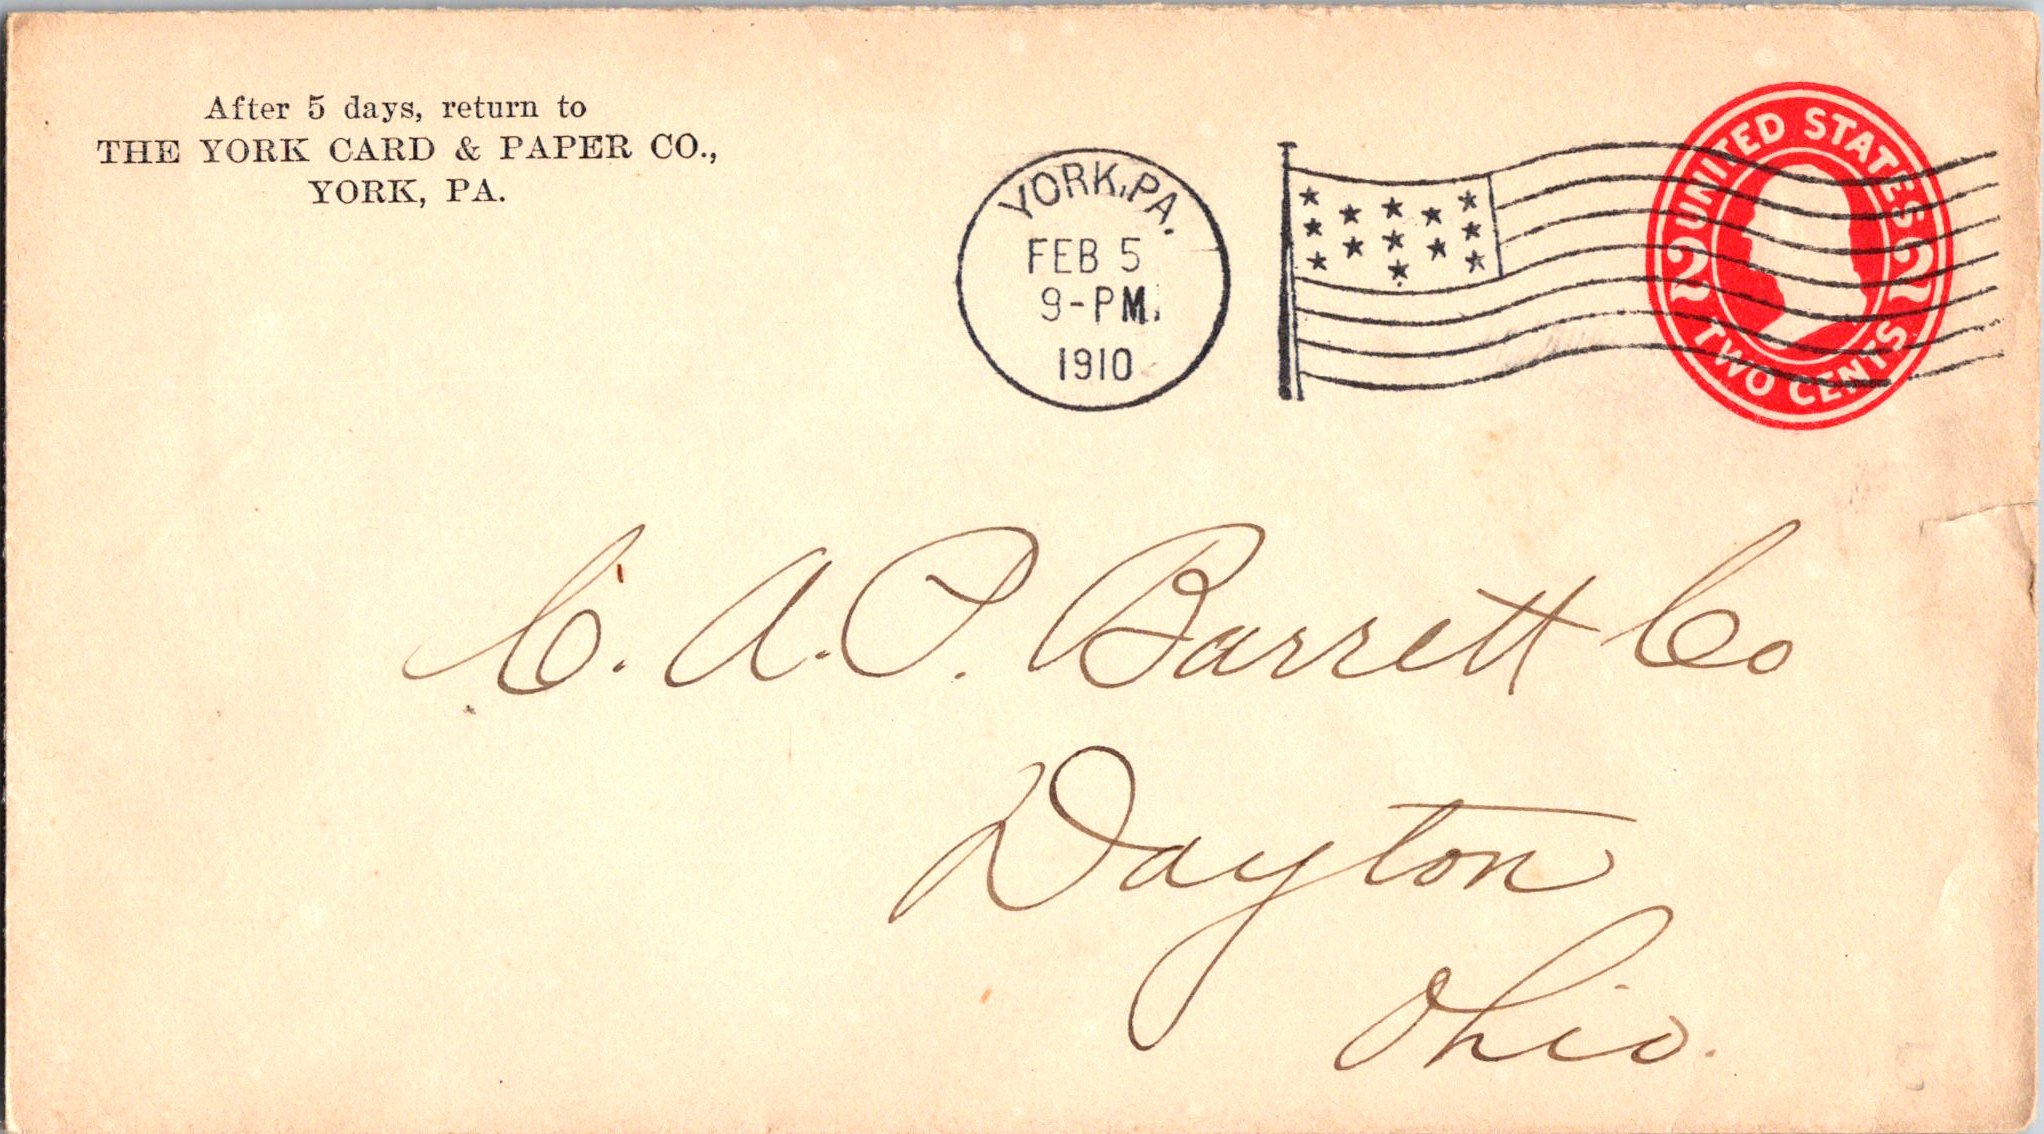 After 5 days, return to
THE YORK CARD & PAPER CO.,
YORK, PA.
YORK, PA.
FEB 5
9-PM.
1910
UNITED STATES
2 2
TWO CENTS
C. A. P. Barrett Co
Dayton
Ohio.